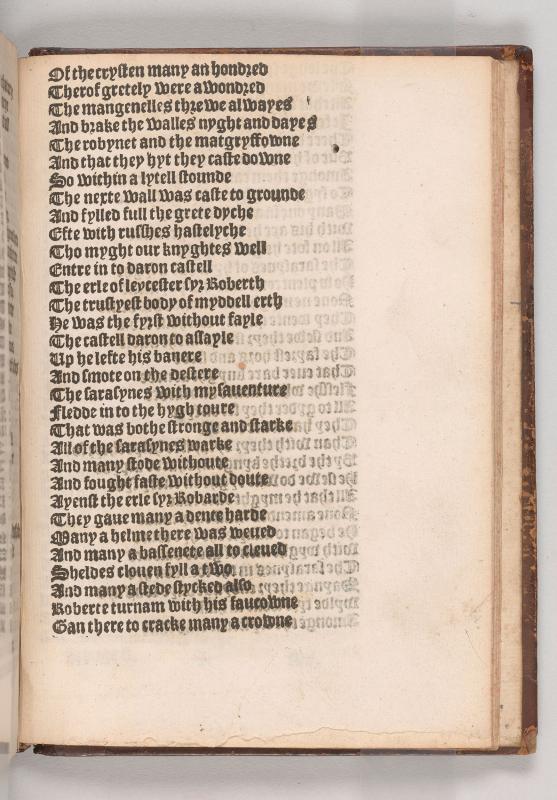 Of the crysten many an hondred
Therof gretely were a wondred
The mangenelles threwe alwayes
And brake the walles nyght and dayes
The robynet and the matgryffowne
And that they hyt they caste downe
So within a lytell stounde
The nexte wall was caste to grounde
And fylled full the grete dyche
Efte with russhes hastelyche
Tho myght our knyghtes well
Entre in to daron castell
The erle of leycester syr Roberth
The trustyest body of myddell erth
He was the fyrst without fayle
The castell daron to assayle
Up he lefte his banere
And smote on the destere
The sarasynes with mysauenture
Fledde in to the hygh toure
That was bothe stronge and starke
All of the sarasynes warke
And many stode withoute
And fought faste without doute
Ayenst the erle syr Robarde
They gaue many a dente harde
Many a helme there was weued
And many a bassenete all to cleued
Sheldes clouen fyll a two
And many a stede stycked also
Roberte turnam with his faucowne
Gan there to cracke many a crowne